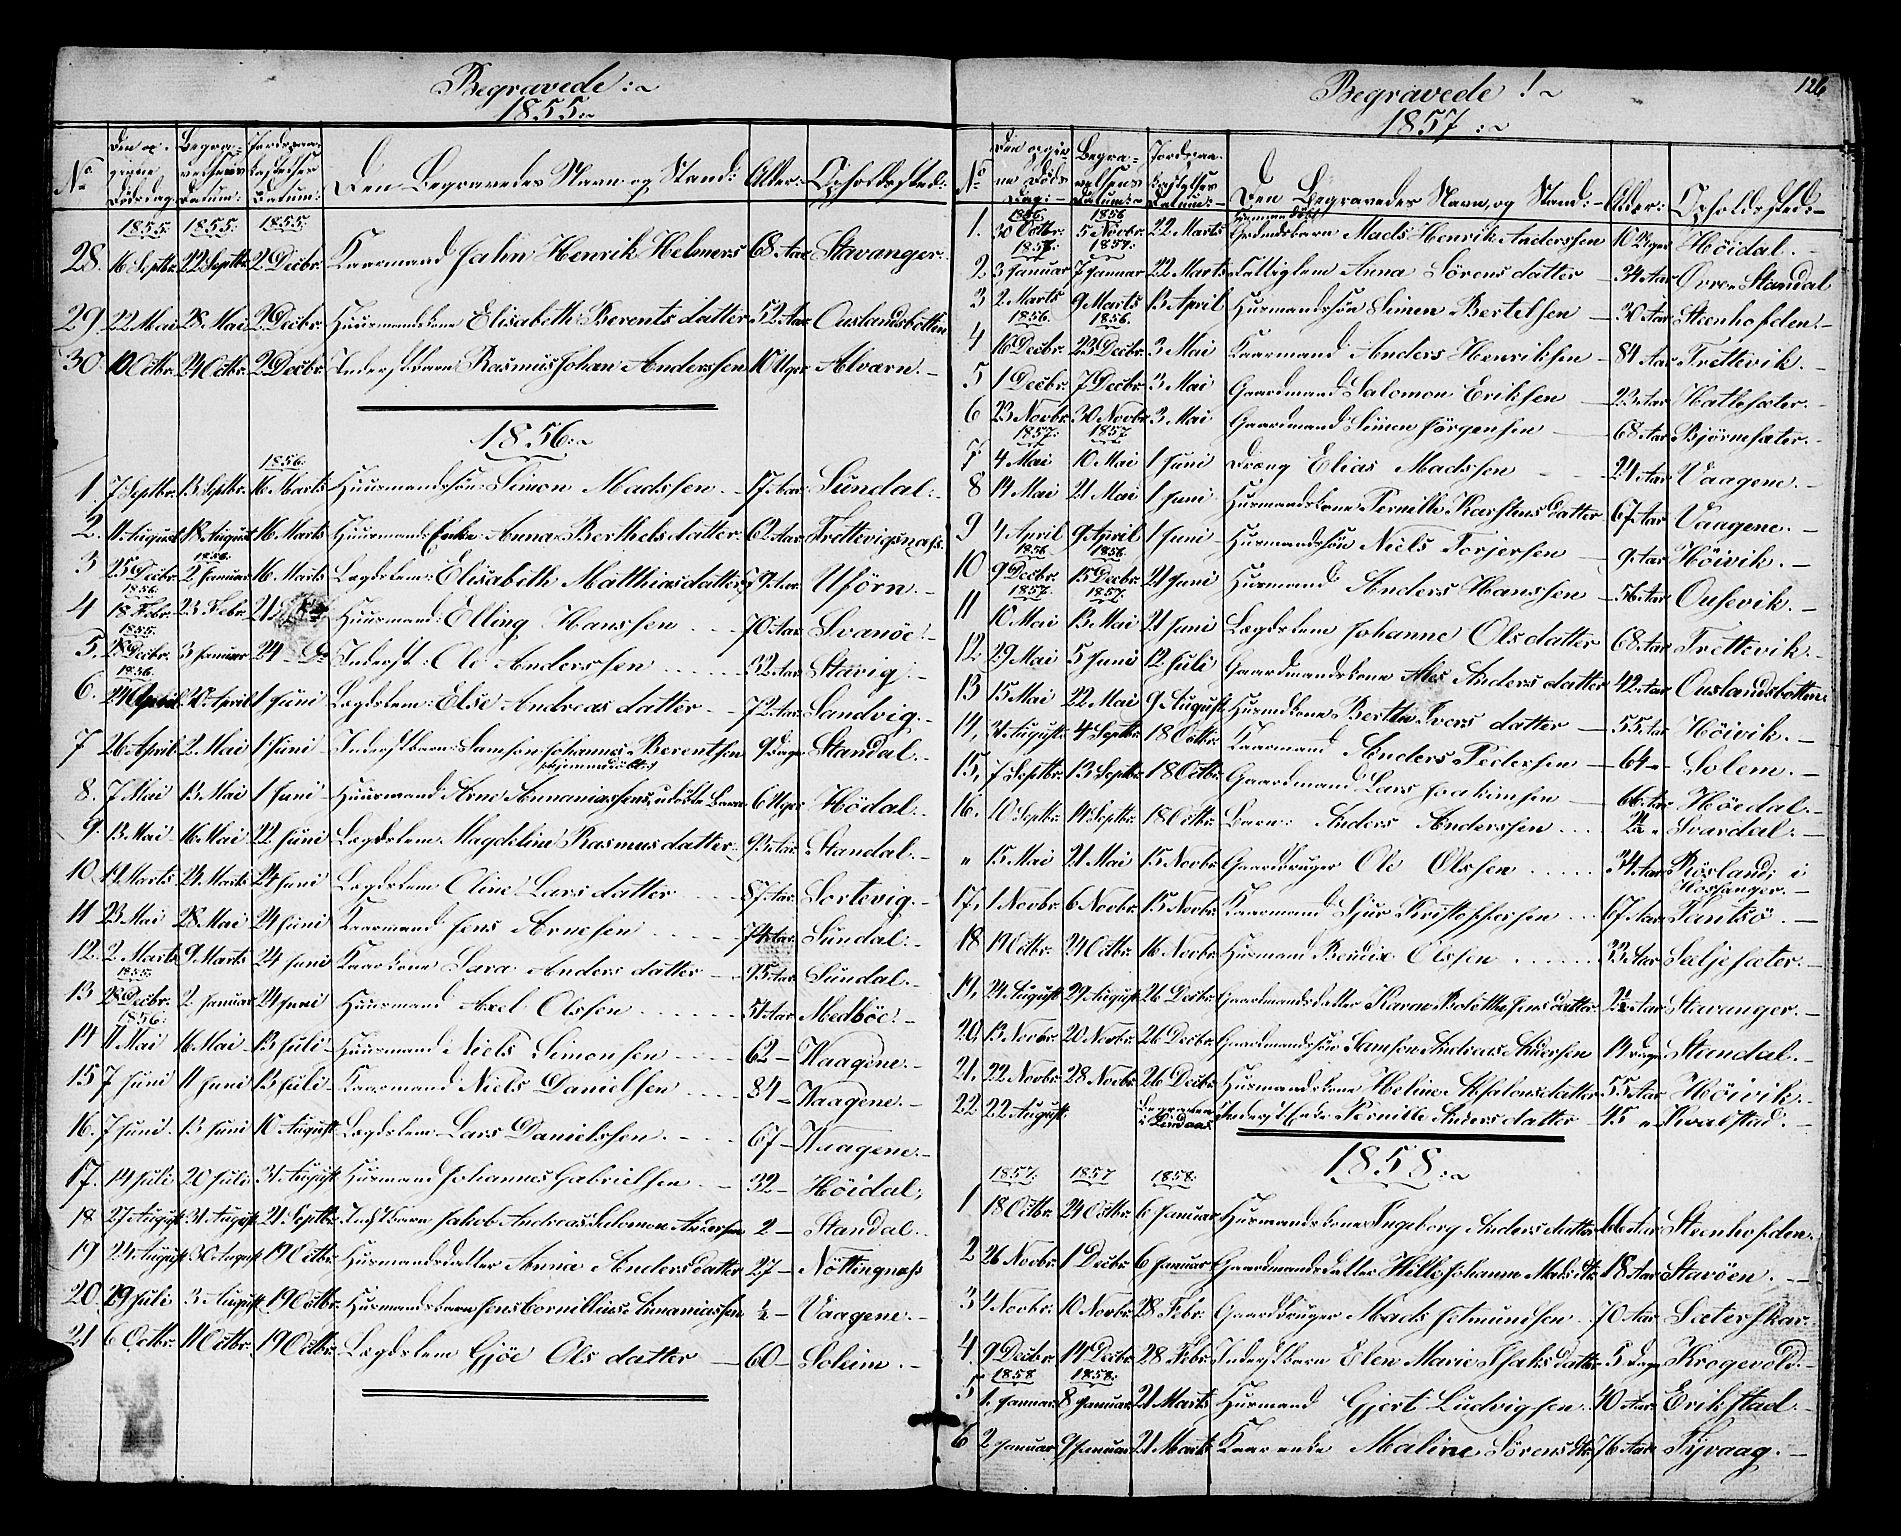 Begravede:~
1855:~
No Den opgivne Dödsdag. Begravelsens Datum: Jordspaakastelses Datum: Den Begravedes Navn og Stand: Alder: Opholdssted:
1855. 1855: 1855.
28. 16 Septbr. 22 Septbr. 2 Decbr. Kaarmand Jahn Henrik Helmers 68 Aar Stavanger.
29. 22 Mai 28 Mai 2 Decbr. Huusmandskone Elisabeth Berentsdatter 52 Aar Ouslandsbotten
30. 10 Octbr. 24 Octbr. 2 Decbr. Inderstbarn Rasmus Johan Anderssen 10 Uger Alværn.-
1856:~
1856.
1. 7 Septbr. 13 Septbr. 16 Marts Huusmandssön: Simon Madssen 17 Aar Sundal:-
2. 11 August 18 August 16 Marts Huusmands Enke Anna Berthelsdatter. 62 Aar Trettevignæs.
1856.
3 25 Decbr. 2 Januar 16 Marts Lægdslem: Elisabeth Matthiasdatter Aar Uförn.-
1856.
4 18 Febr. 23 Febr. 21 Huusmand: Elling Hanssen 70 Aar Svanöe!-
1855.
5. 28 Decbr. 3 Januar 24 Inderst: Ole Anderssen 32 Aar Stavig.-
1856.
6. April 20 April 1 Juni Lægdslem: Else Andreasdatter 72 Aar Sandvig.-
7 26 April 2 Mai 1 Juni Inderstbarn: Samson Johannes Berentsen 9 Dage Standal.-
(hjemmedöbt)
8. 7 Mai 13 Mai 1 Juni Huusmand Arne Annaniassens udöbte Barn 6 Uger Höidal.-
9. 13 Mai 16 Mai 22 Juni Lægdslem Magdeline Rasmusdatter. 93 Aar Standal.-
10. 19 Marts 24 Marts 24 Juni Lægdslem Oline Larsdatter 87 Aar Sortevig.-
11 23 Mai 28 Mai 24 Juni Kaarmand Jens Arnesen 74 Aar Sundal:-
12. 2 Marts 9 Marts 24 Juni Kaarkone Sara Andersdatter 95 Aar Sundal.-
1855.
13 28 Decbr. 2 Januar 24 Juni Huusmand Axel Olssen 51 Aar Medböe!-
1856.
14 11 Mai 16 Mai 13 Juli Huusmand Niels Simonsen 62- Waagene.-
15 7 Juni 11 Juni 13 Juli Kaarmand Niels Danielssen 84- Waagene.-
16. 7 Juni 13 Juni 10 August Lægdslem Lars Danielssen 67- Waagene.-
17. 14 Juli 20 Juli 31 August Husmand Johannes Gabrielsen 32- Höidal.
18. 27 August 31 August 21 Septbr. Indstbarn Jakob Andreas Salomon Andersen 2- Standal.-
19 24 August 30 August 19 Octbr. Husmandsdatter Anna Andersdatter 27- Nöttingnæss
20. 29 Juli 3 August 19 Octbr. Husmandsbarn Jens Cornillius Annaniassen ½- Vaagene.-
21 6 Octbr. 11 Octbr. 19 Octbr. Lægdslem Gjöe Olsdatter 60- Soleim.-
Begravede!~
126
1857:~
No Den opgivne Döds Dag: Begravelsens Datum:~ Jordspaakastelses Datum:- Den Begravedes Navn, og Stand:- Alder: Opholdssted:-
1856. 1856
1. 30 Octbr. 5 Novbr. 22 Marts Barn Mads Henrik Anderssen 10 Uger Höidal.
1857. 1857.
2 3 Januar 7 Januar 22 Marts Fattiglem Anna Sörensdatter 34 Aar Övre Standal
3 2 Marts 9 Marts 13 April Husmandssön Simen Bertelsen 30 Aar Steenhofden!-
1856. 1856.
4 16 Decbr. 23 Decbr. 3 Mai Kaarmand Anders Henriksen 84 Aar Trettevik.-
5 1 Decbr. 7 Decbr. 3 Mai Gaardmand Salomon Eriksen 23 Aar Hatlesæter.-
6 23 Novbr. 30 Novbr. 3 Mai Gaardmand Simon Jörgensen 68 Aar Björnesæter.-
1857. 1857
7 4 Mai 10 Mai 1 Juni Dreng Elias Madssen 24 Aar Vaagene.-
8 14 Mai 21 Mai 1 Juni Husmandskone Pernille Karstensdatter 67 Aar Vaagene.-
9 4 April 9 April 1 Juni Husmandssön Niels Torjersen 9 Aar Höivik.-
1856 1856.
10 9 Decbr. 15 Decbr. 21 Juni Husmand Anders Hanssen 56 Aar Ousevik.-
1857. 1857.
11 10 Mai 13 Mai 21 Juni Lægdslem Johanne Olsdatter 68 Aar Trettevik.-
12. 29 Mai 5 Juni 12 Juli Gaardmandskone Ales Andersdatter 42 Aar Ouslandsbotten.
13 15 Mai 22 Mai 9 August Husmdkone Berthe Iversdatter 55 Aar Höivik.-
14. 31 August 4 Septbr. 18 Octbr. Kaarmand Anders Pedersen 64 " Solem.-
15. 7 Septbr. 13 Septbr. 18 Octbr. Gaardmand Lars Joakimsen 66 Aar Höidal.-
16. 10 Septbr. 14 Septbr. 18 Octbr. Barn: Anders Anderssen Svardal.-
" 15 Mai 21 Mai 15 Novbr. Gaardbruger Ole Olssen 34 Aar Rösland i Hosanger.-
17. 1 Novbr. 6 Novbr. 15 Novbr. Kaarmand Sjur Kristoffersen 67 Aar Santsö.-
18. 19 Octbr. 24 Octbr. 16 Novbr. Husmand Bendix Olssen 33 Aar Sæljesæter.-
19. 24 August 29 August 26 Decbr. Gaardmandsdatter Karen Bolethe Jensdatter Aar Stavanger.-
20. 13 Novbr. 20 Novbr. 26 Decbr. Gaardmandssön Samson Andreas Andersen 14 Dage Standal.-
21. 22 Novbr. 28 Novbr. 26 Decbr. Husmandskone Heline Absalonsdatter 55 Aar Höivik.-
22 22 August. Begraven i Lindaas Inderst Enke Pernille Andersdatter 45 " Kvalstad.-
1858:~
1857. 1857 1858.
1 18 Octbr. 24 Octbr. 6 Januar Husmandskone Ingeborg Andersdatter 66 Aar Steenhofden.
2 26 Novbr. 1 Decbr. 6 Januar Gaardmandsdatter Hille Johanne Madsdtr. 18 Aar Stavöen.-
3 4 Novbr. 10 Novbr. 28 Febr. Gaardbruger Mads Jetmundsen 70 Aar Sæterskar.
4. 9 Decbr. 14 Decbr. 28 Febr. Inderstbarn Elen Marie Isaksdatter 5 Dage Krogevold.-
1858 1858.
5 1. Januar 8 Januar. 21 Marts Husmand Gjert Ludvigsen 40 Aar Erikstad.-
6 2 Januar 9 Januar 21 Marts Kaarenke Maline Sörensdtr. 76 Aar Tyvaag.-